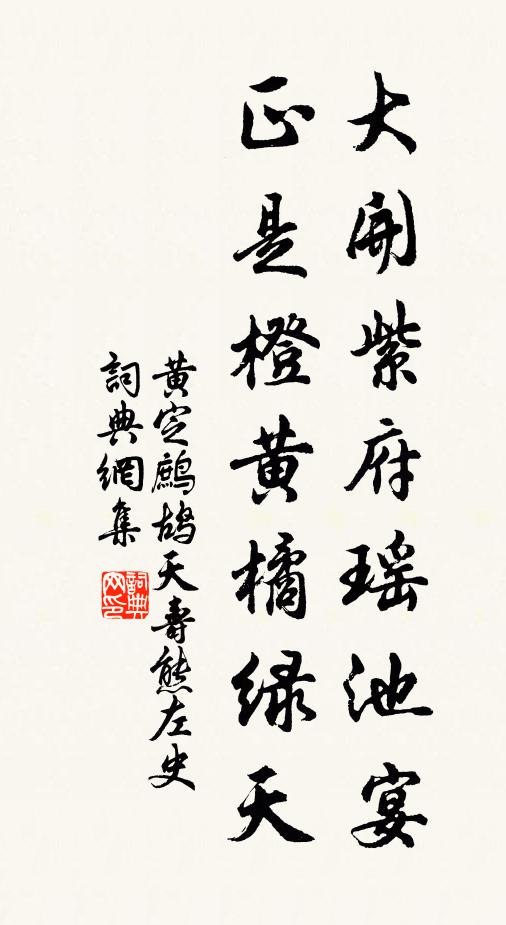 大開紫府瑤池宴
正是橙黄橘緑天
黄定鷓鴣天壽熊左史
詞典網集
詞典网印